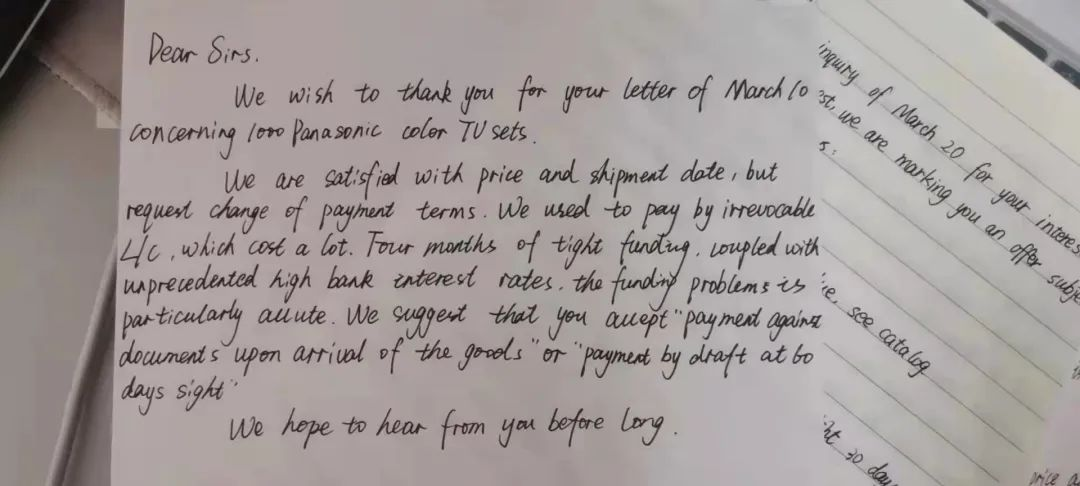 Dear Sirs.
We wish to thank you for your letter of March 10
concerning 1000 Panasonic color TV sets.
We are satisfied with price and shipment date, but
request change of payment terms. We used to pay by irrevocable
L/c, which cost a lot. Four months of tight funding, coupled with
unprecedented high bank interest rates, the funding problems is
particularly acute. We suggest that you accept "payment against
documents upon arrival of the goods" or "payment by draft at 60
days sight"
We hope to hear from you before long.
inquiry of March 20 for your interest
we are marking you an offer subje
see catalog
30 day
price